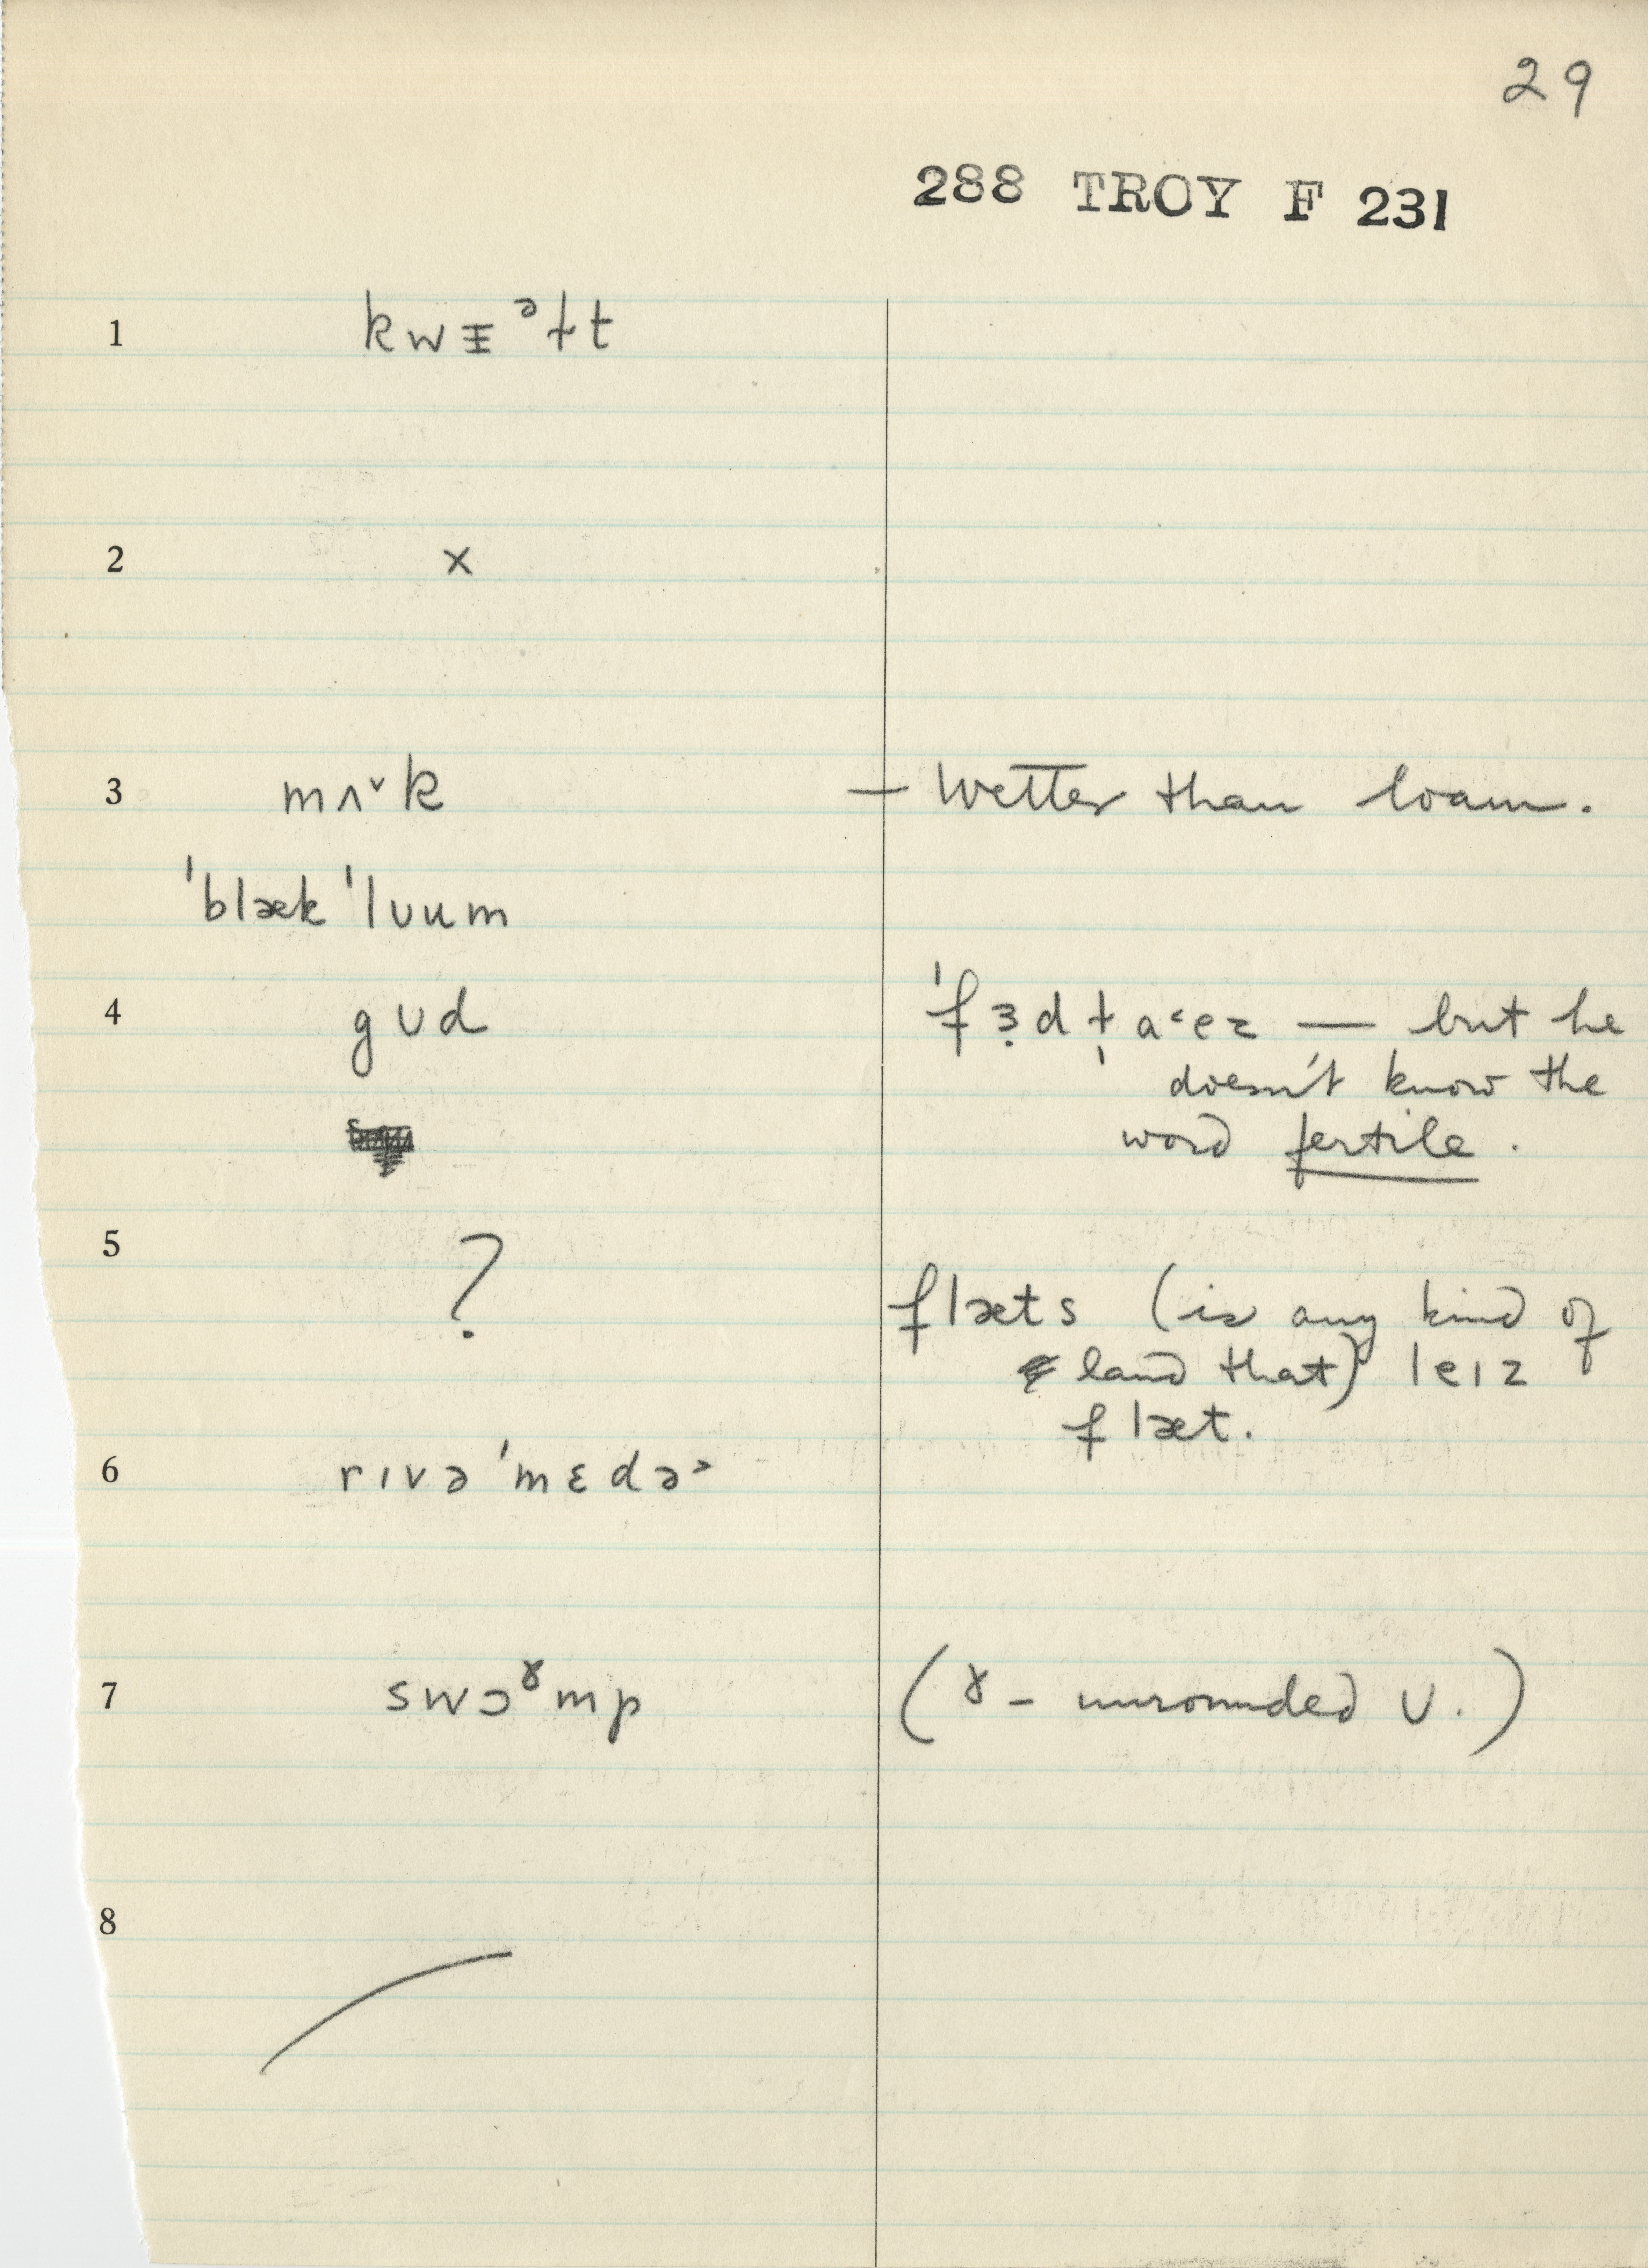 29
288 TROY F 231
1 kwᵻᵊɫt
2 x
3 mʌ˅k — Wetter than loam.
ˈblæk ˈlʊum
4 gʊd ˈfɜ̣dɫ̩ a˂ez — but he
doesn't know the
word fertile.
5 ? flæts (is any kind of
land that) leɪz
flæt.
6 rɪvə ˈmɛdə˃
7 swɔˠmp (ɤ – unrounded ʊ.)
8